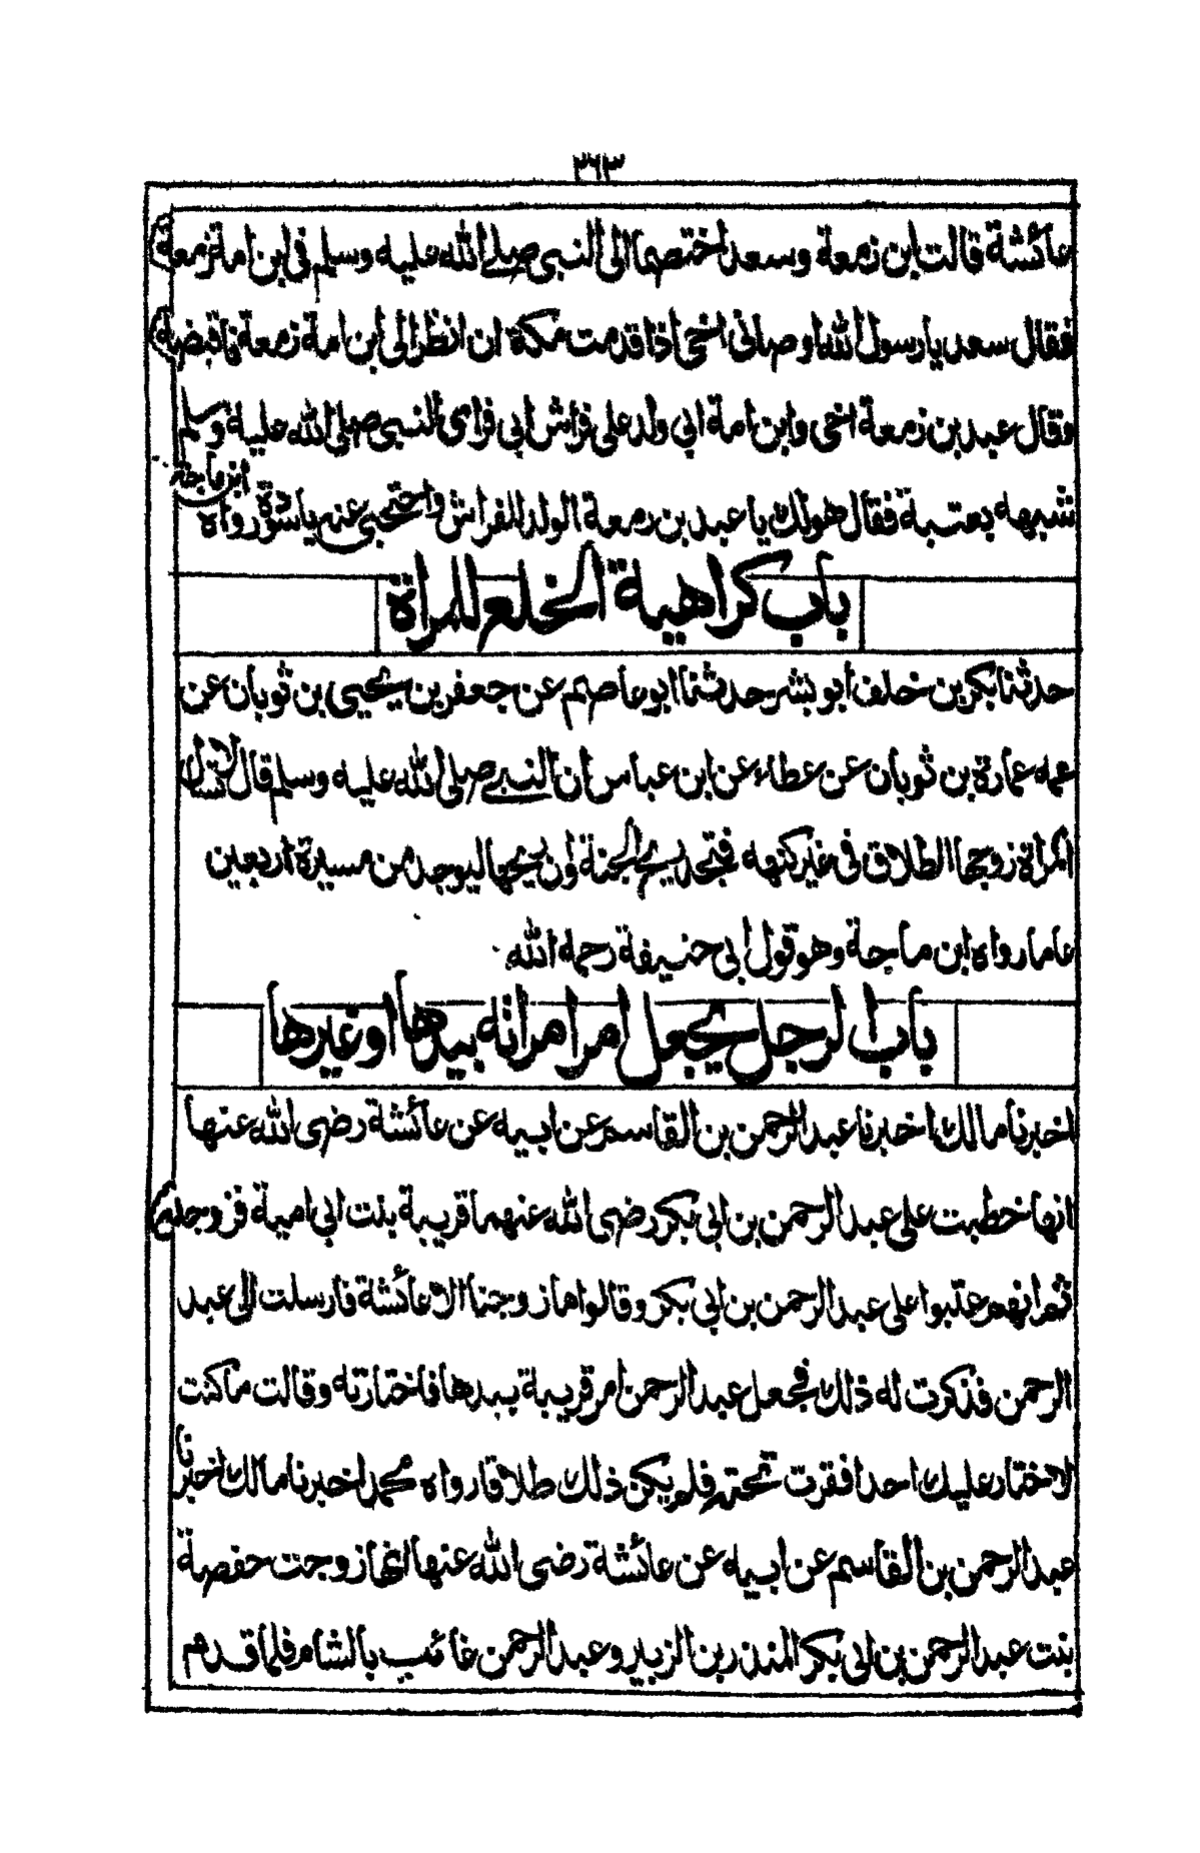 ٣٦٣
عائشة قالت ابن زمعة وسعد اختصما الى النبى صلى الله عليه وسلم فى ابن امة زمعة
فقال سعد يا رسول الله اوصانى اخى اذا قدمت مكة ان انظر الى ابن امة زمعة فاقبضه
وقال عبد بن زمعة اخى وابن امة ابي ولد على فراش ابي فراى النبى صلى الله عليه وسلم
شبهه بعتبة فقال هو لك يا عبد بن زمعة الولد للفراش واحتجبى عنه يا سودة رواه ابن ماجة
باب كراهية الخلع للمرأة
حدثنا بكر بن خلف ابو بشر حدثنا ابو عاصم عن جعفر بن يحيى بن ثوبان عن
عمه عمارة بن ثوبان عن عطاء عن ابن عباس ان النبى صلى الله عليه وسلم قال لا تسأل
المرأة زوجها الطلاق فى غير كنهه فتجد ريح الجنة وان ريحها ليوجد من مسيرة اربعين
عاما رواه ابن ماجة وهو قول ابى حنيفة رحمه الله
باب الرجل يجعل امر امرأته بيدها او غيرها
اخبرنا مالك اخبرنا عبد الرحمن بن القاسم عن ابيه عن عائشة رضى الله عنها
انها خطبت على عبد الرحمن بن ابى بكر رضى الله عنهما قريبة بنت ابي امية فزوجته
ثم انهم عتبوا على عبد الرحمن بن ابي بكر وقالوا ما زوجنا الا عائشة فارسلت الى عبد
الرحمن فذكرت له ذلك فجعل عبد الرحمن امر قريبة بيدها فاختارته وقالت ما كنت
لاختار عليك احدا فقرت تحته فلم يكن ذلك طلاقا رواه محمد اخبرنا مالك اخبرنا
عبد الرحمن بن القاسم عن ابيه عن عائشة رضى الله عنها انها زوجت حفصة
بنت عبد الرحمن بن ابى بكر المنذر بن الزبير وعبد الرحمن غائب بالشام فلما قدم